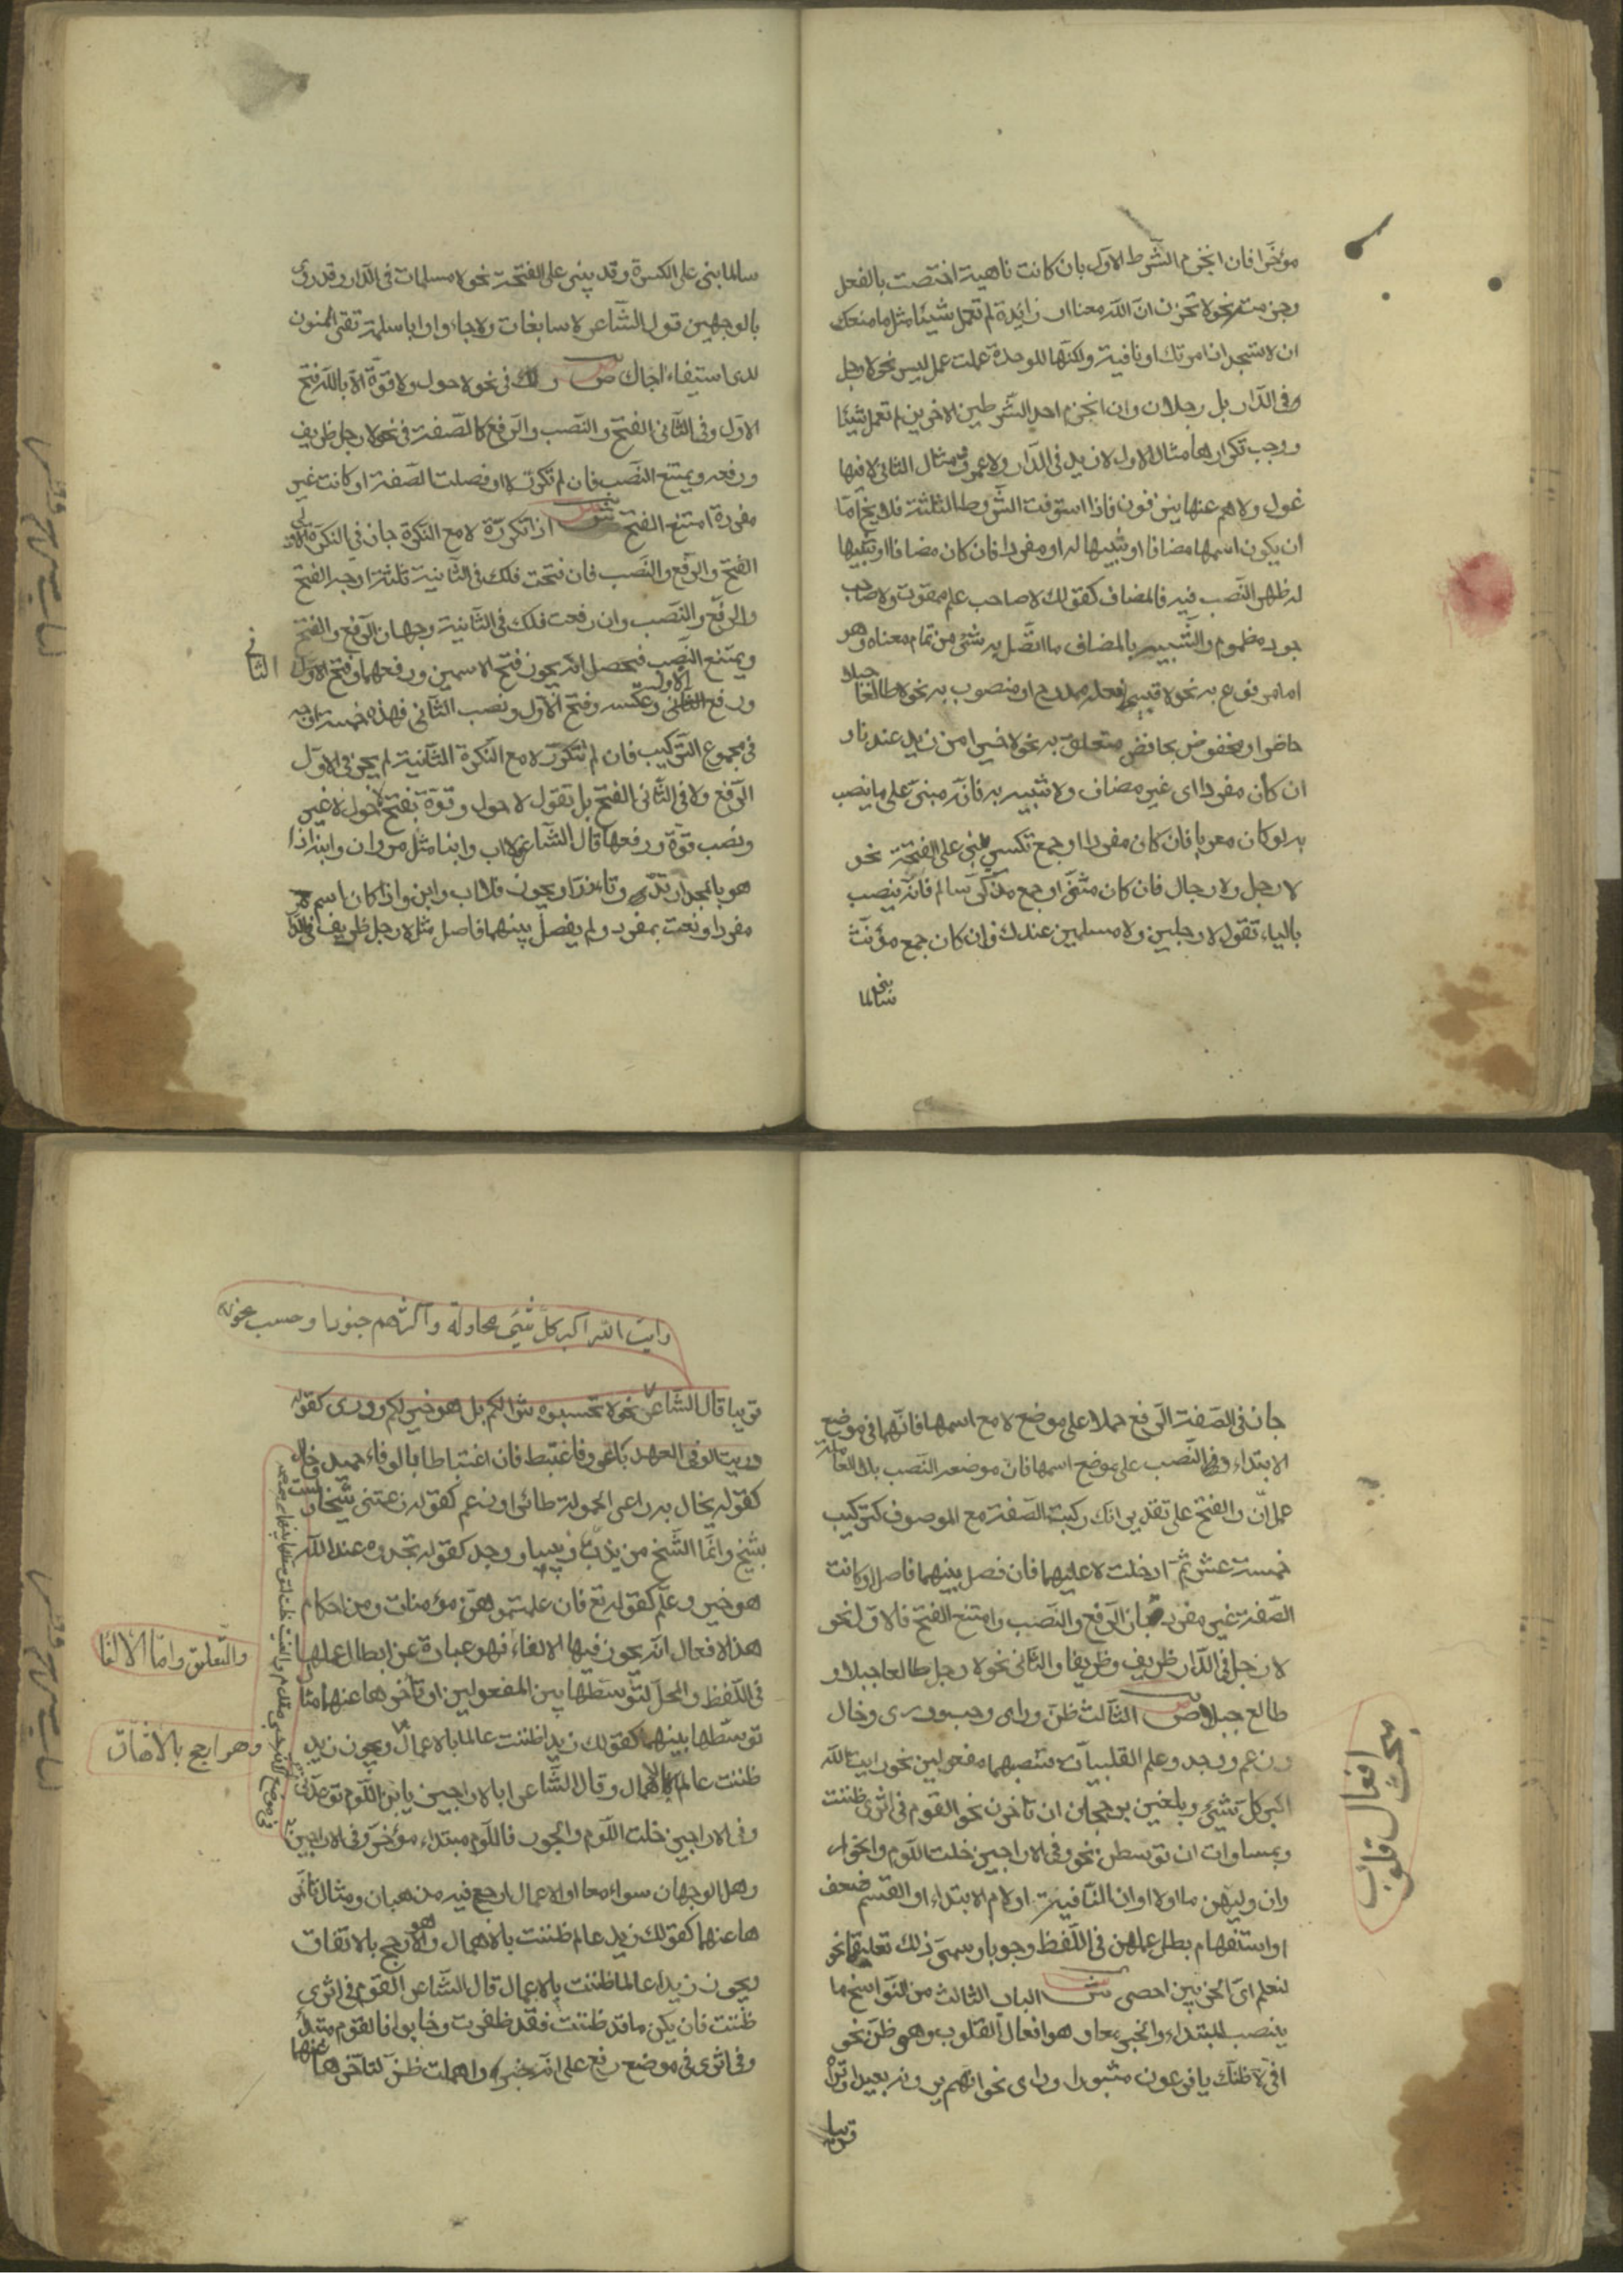 مؤخرا فان انخرم الشرط الاول بان كانت ناهية اختصت بالفعل
وجزمته نحو لا تحزن ان الله معنا او زائدة لم تعمل شيئا مثل ما منعك
ان لا تسجد اذ امرتك او نافية ولكنها للوحدة عملت عمل ليس نحو لا رجل
فى الدار بل رجلان وان انخرم احد الشرطين الاخرين لم تعمل شيئا
ووجب تكرارها مثال الاول لا زيد فى الدار ولا عمرو مثال الثانى لا فيها
غول ولا هم عنها ينزفون فاذا استوفت الشروط الثلثة فلا يخ اما
ان يكون اسمها مضافا او شبيها له او مفردا فان كان مضافا او شبيها
له ظهر النصب فيه فالمضاف كقولك لا صاحب علم ممقوت ولا صاحب
جود مذموم والشبيه بالمضاف ما اتصل به شئ من تمام معناه وهو
اما مرفوع به نحو لا قبيحا فعله ممدوح او منصوب به نحو لا طالعا جبلا
حاضر او مخفوض بخافض متعلق به نحو لا خيرا من زيد عندنا و
ان كان مفردا اى غير مضاف ولا شبيه به فانه مبنى على ما ينصب
به لو كان معربا فان كان مفردا او جمع تكسير بنى على الفتحة نحو
لا رجل ولا رجال فان كان مثنى او جمع مذكر سالم فانه ينصب
بالياء تقول لا رجلين ولا مسلمين عندك وان كان جمع مؤنث
سالما بنى
سالما بنى على الكسرة وقد يبنى على الفتحة نحو لا مسلمات فى الدار وقد روى
بالوجهين قول الشاعر لا سابغات ولا جاواء باسلة تقى المنون
لدى استيفاء اجال ص ولك فى نحو لا حول ولا قوة الا بالله فتح
الاول وفى الثانى الفتح والنصب والرفع كالصفة فى نحو لا رجل ظريف
ورفعه ويمتنع النصب فان لم تكرر لا او فصلت الصفة او كانت غير
مفردة امتنع الفتح ش اذا تكررت لا مع النكرة جاز فى النكرة الاولى
الفتح والرفع والنصب فان فتحت فلك فى الثانية ثلثة اوجه الفتح
والرفع والنصب وان رفعت فلك فى الثانية وجهان الرفع والفتح
ويمتنع النصب فيحصل انه يجوز فتح الاسمين ورفعهما وفتح الاول
الثانى
الاول
ورفع الثانى وعكسه وفتح الاول ونصب الثانى فهذه خمسة اوجه
فى مجموع التركيب فان لم تتكرر لا مع النكرة الثانية لم يجز فى الاول
الرفع ولا فى الثانى الفتح بل تقول لا حول وقوة بفتح حول لا غير
ونصب قوة ورفعها قال الشاعر لا اب وابنا مثل مروان وابنه اذا
هو بالمجد ارتدى وتازرا ويجوز فلا اب وابن واذا كان اسم لا
مفردا ونعت بمفرد ولم يفصل بينهما فاصل مثل لا رجل ظريف فى الدار
جاز فى الصفة الرفع حملا على موضع لا مع اسمها فانهما فى موضع
الابتداء وفى النصب على موضع اسمها فان موضعه النصب بلا العاملة
عمل ان والفتح على تقدير انك ركبت الصفة مع الموصوف كتركيب
خمسة عشر ثم ادخلت لا عليهما فان فصل بينهما فاصل او كانت
الصفة غير مفردة جاز الرفع والنصب وامتنع الفتح فالاول نحو
لا رجل فى الدار ظريف وظريفا والثانى نحو لا رجل طالعا جبلا و
طالع جبلا ص الثالث ظن وراى وحسب ودرى وخال
وزعم ووجد وعلم القلبيات فتنصبهما مفعولين نحو رايت الله
اكبر كل شئ ويلغين برجحان ان تاخرن نحو القوم فى اثرى ظننت
وبمساوات ان توسطن نحو وفى الاراجيز خلت اللوم والخور
وان وليهن ما او لا او ان النافية او لام الابتداء او القسم
او استفهام بطل عملهن فى اللفظ وجوبا وسمى ذلك تعليقا نحو
لنعلم اى الحزبين احصى ش الباب الثالث من النواسخ ما
ينصب المبتداء والخبر معا وهو افعال القلوب وهو ظن نحو
انى لاظنك يا فرعون مثبورا وراى نحو انهم يرونه بعيدا ونراه
قريبا
مبحث افعال قلوب
رايت الله اكبر كل شئ محاولة واكثرهم جنودا وحسب نحو
قريبا قال الشاعر نحو لا تحسبوه شرا لكم بل هو خير لكم ودرى كقوله
دريت الوفى العهد يا عرو فاغتبط فان اغتباطا بالوفاء حميد وخال
كقوله يخال به راعى الحمولة طائرا وزعم كقوله زعمتنى شيخا ولست
بشيخ وانما الشيخ من يدب دبيبا ووجد كقوله تجدوه عند الله
هو خير وعلم كقوله تع فان علمتموهن مؤمنات ومن احكام
هذه الافعال انه يجوز فيها الالغاء فهو عبارة عن ابطال عملها
والتعليق واما الالغا
فى اللفظ والمحل لتوسطها بين المفعولين او تأخرها عنهما مثال
توسطها بينهما كقولك زيدا ظننت عالما بالاعمال ويجوز زيد
وهو ارجح بالاتفاق
ظننت عالم بالاهمال وقال الشاعر ابالاراجيز يابن اللوم توعدنى
وفى الاراجيز خلت اللوم والخور فاللوم مبتداء مؤخر وفى الاراجيز
وهل الوجهان سواء معا او الاعمال ارجح فيه مذهبان ومثال تاخر
ها عنهما كقولك زيد عالم ظننت بالاهمال وهو الارجح بالاتفاق
ويجوز زيدا عالما ظننت بالاعمال قال الشاعر القوم فى اثرى
ظننت فان يكن ما قد ظننت فقد ظفرت وخابوا فالقوم مبتدأ
وفى اثرى فى موضع رفع على انه خبره واهملت ظن لتاخرها عنهما